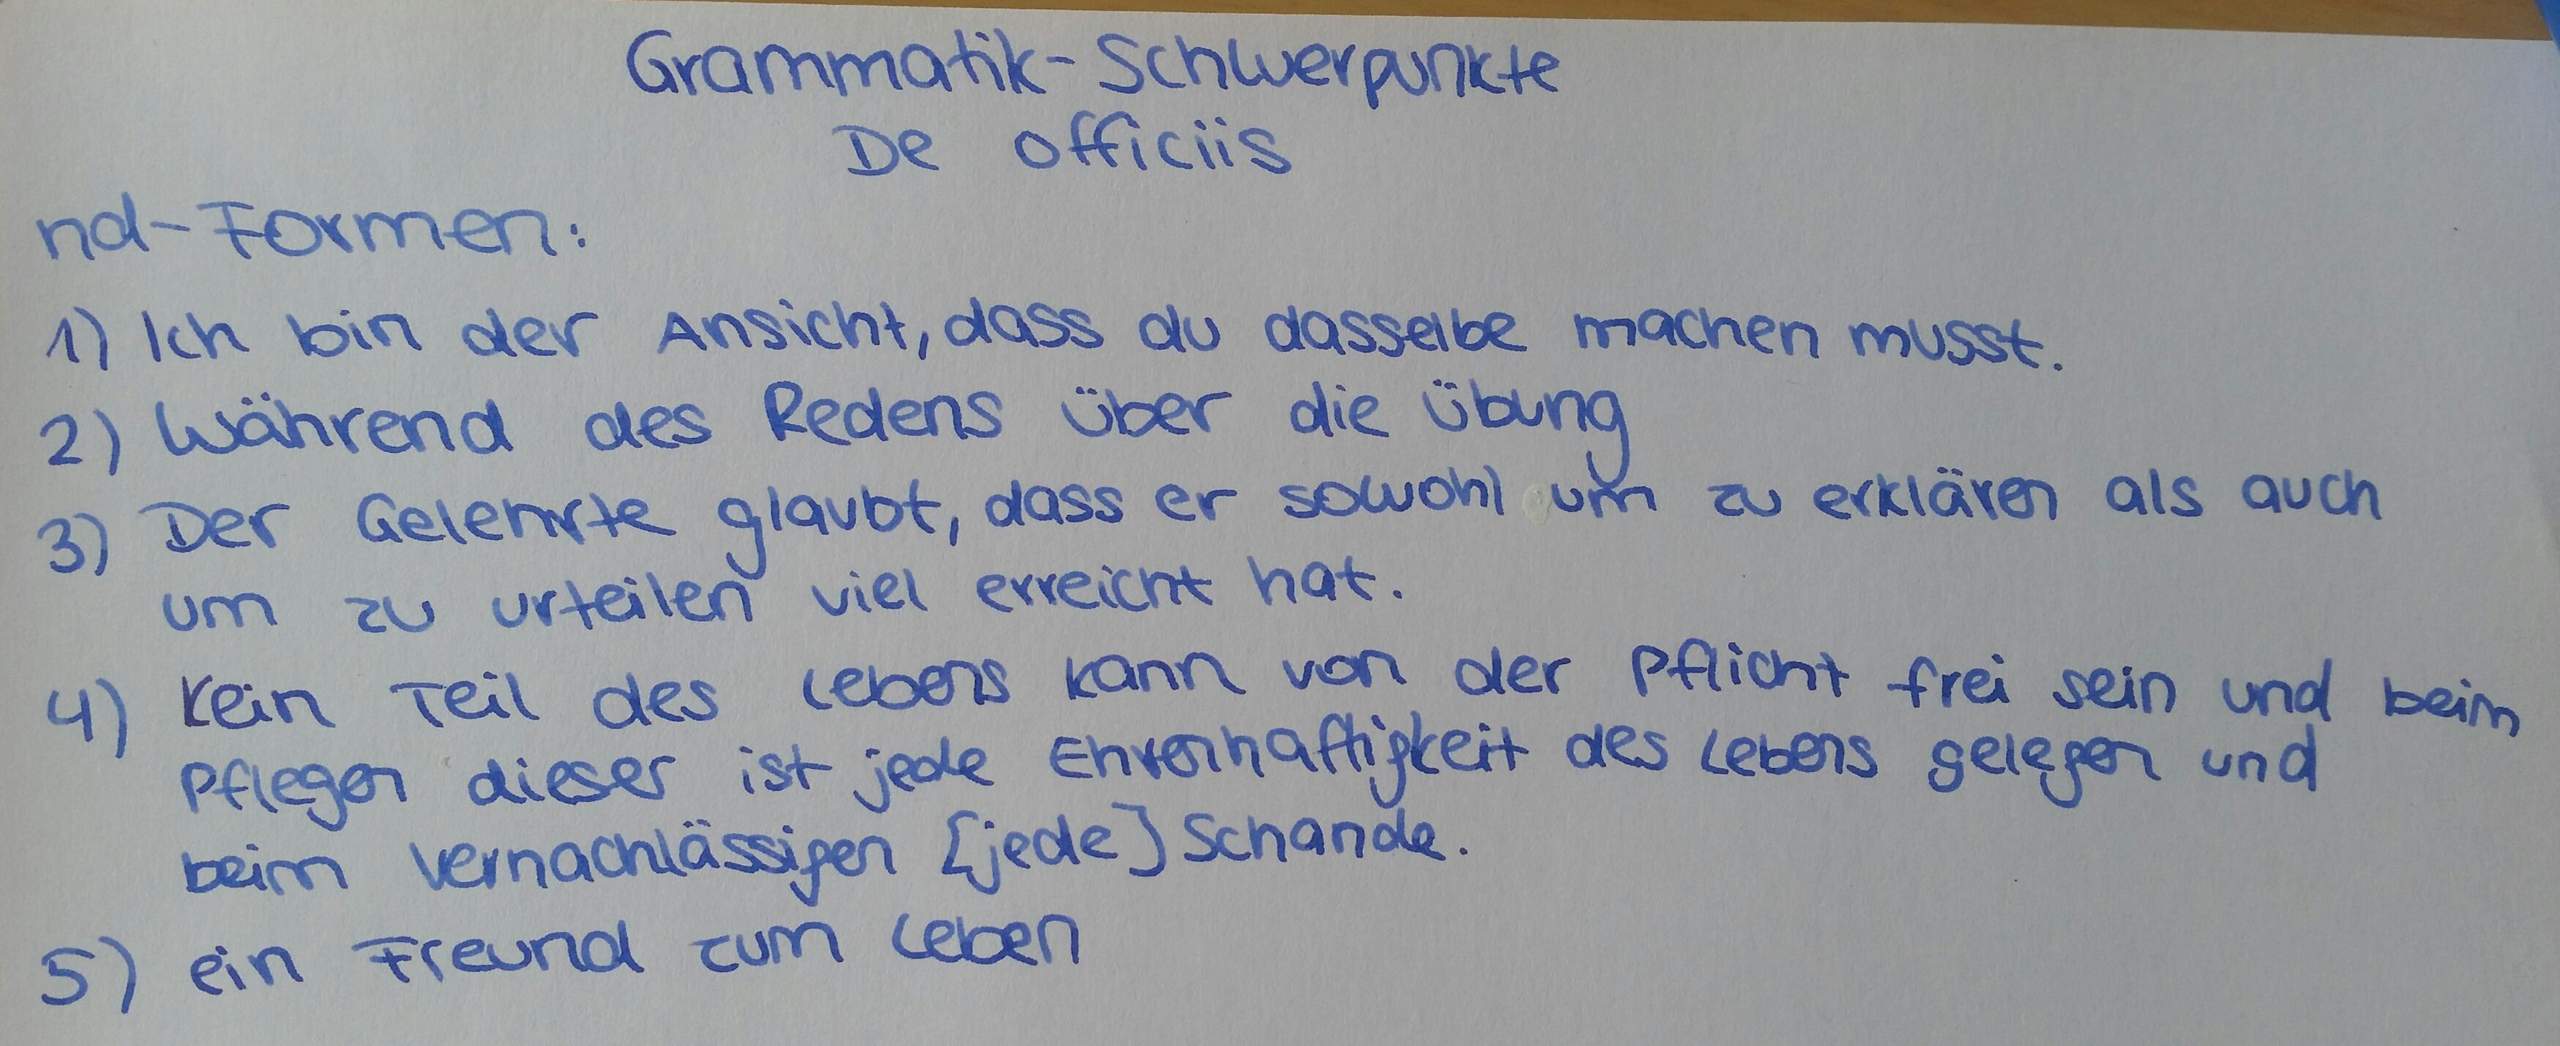 Grammatik-Schwerpunkte
De officiis
nd-Formen:
1) Ich bin der Ansicht, dass du dasselbe machen musst.
2) Während des Redens über die Übung
3) Der Gelehrte glaubt, dass er sowohl um zu erklären als auch
um zu urteilen viel erreicht hat.
4) Kein Teil des Lebens kann von der Pflicht frei sein und beim
Pflegen dieser ist jede Ehrenhaftigkeit des Lebens gelegen und
beim Vernachlässigen [jede] Schande.
5) ein Freund zum Leben